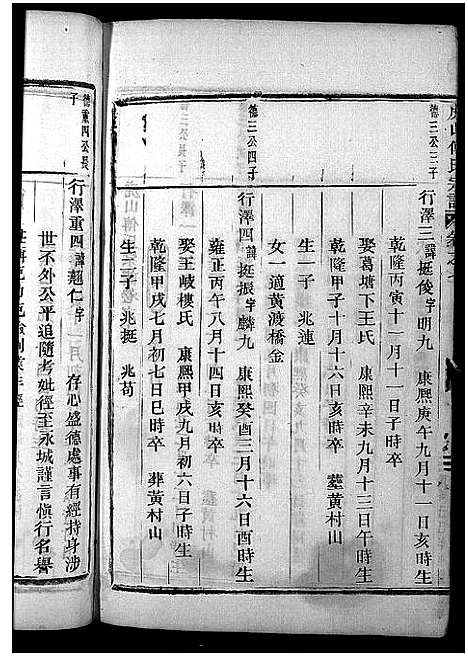 德三公三子
行澤三諱挺俊字明九 康熙庚午九月十一日亥時生
乾隆丙寅十一月十一日子時卒
娶葛塘下王氏 康熙辛未九月十三日午時生
乾隆甲子十月十六日亥時卒 塟黃村山
生一子 兆連
女一適黃渡橋金
德三公四子
行澤四諱挺振字麟九 康熙癸酉三月十六日酉時生
雍正丙午八月十四日亥時卒
娶王岐樓氏 康熙甲戌九月初六日子時生
乾隆甲戌七月初七日巳時卒 葬黃村山
生二子 兆挺 兆苟
德重四公長子
行澤重四諱趐仁字 存心盛德處事有經持身涉
世不外公平追隨考妣徑至永城謹言愼行名譽